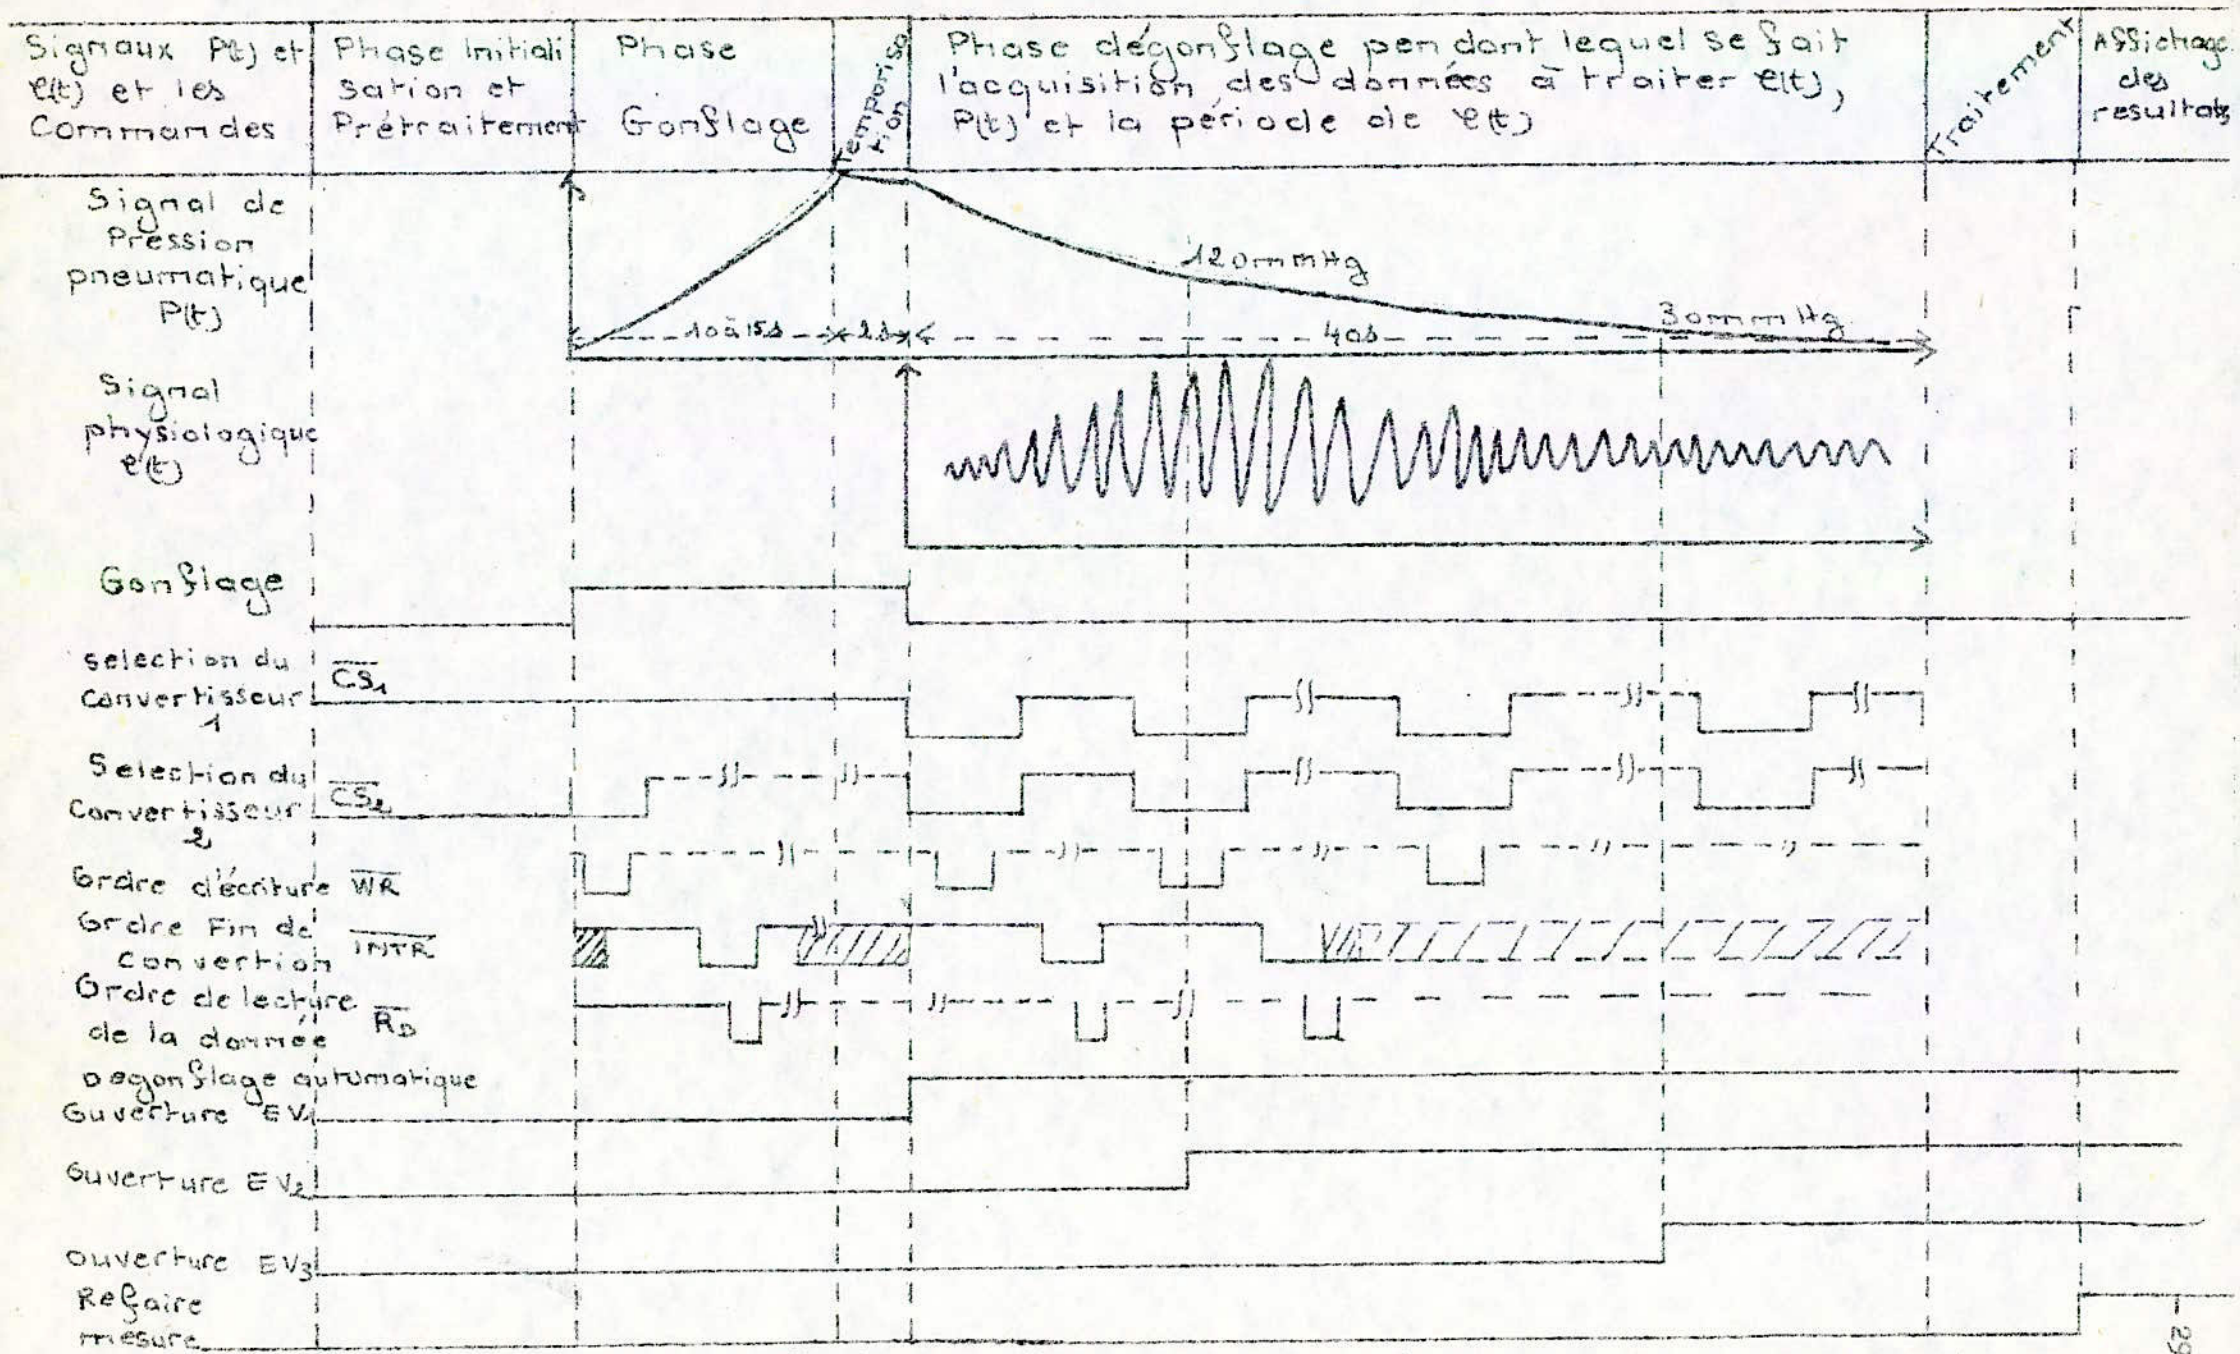 Signaux P(t) et
e(t) et les
Commandes
Phase Initiali
sation et
Prétraitement
Phase
Gonflage
Temporisa
tion
Phase dégonflage pendant lequel se fait
l'acquisition des données à traiter e(t),
P(t) et la période de e(t)
Traitement
Affichage
des
resultats
Signal de
Pression
pneumatique
P(t)
120mmHg
30mmHg
10 à 15s
2s
40s
Signal
physiologique
e(t)
Gonflage
selection du
Convertisseur
1
CS1
Selection du
Convertisseur
2
CS2
Ordre d'écriture WR
Ordre Fin de
Convertion
INTR
Ordre de lecture
de la donnée
RD
Dégonflage automatique
Ouverture EV1
Ouverture EV2
Ouverture EV3
Refaire
mesure
29